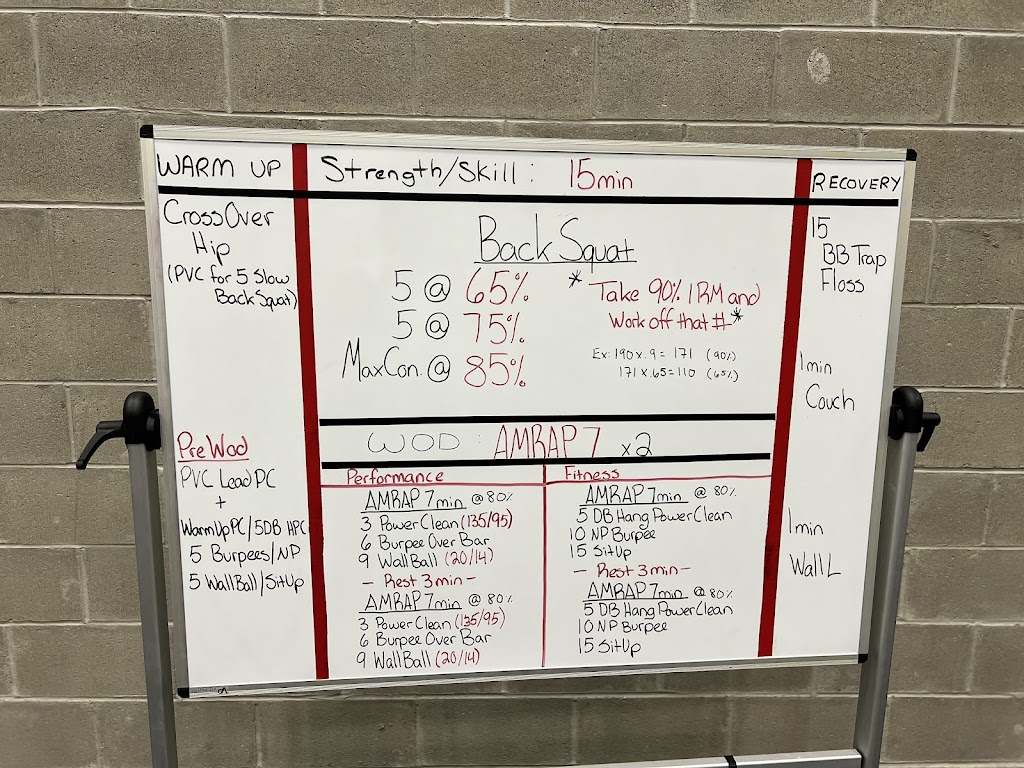 WARM UP
CrossOver
Hip
(PVC for 5 Slow
Back Squat)
Pre Wod
PVC Lead PC
+
Warm Up PC/5DB HPC
5 Burpees/NP
5 WallBall/SitUp
Strength/Skill: 15min
Back Squat
5 @ 65%
5 @ 75%
MaxCon. @ 85%
* Take 90% 1RM and
Work off that # *
Ex: 190 x .9 = 171 (90%)
171 x .65 = 110 (65%)
WOD: AMRAP 7 x2
Performance
AMRAP 7min @ 80%
3 Power Clean (135/95)
6 Burpee Over Bar
9 WallBall (20/14)
- Rest 3min -
AMRAP 7min @ 80%
3 Power Clean (135/95)
6 Burpee Over Bar
9 WallBall (20/14)
Fitness
AMRAP 7min @ 80%
5 DB Hang Power Clean
10 NP Burpee
15 SitUp
- Rest 3min -
AMRAP 7min @ 80%
5 DB Hang Power Clean
10 NP Burpee
15 SitUp
RECOVERY
15
BB Trap
Floss
1min
Couch
1min
Wall L